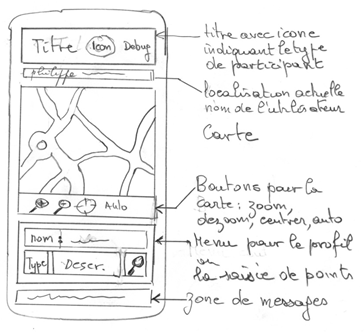 Titre Icon Debug
philippe
Auto
nom :
Type Descr.
titre avec icone
indiquant le type
de participant
localisation actuelle
nom de l'utilisateur
Carte
Boutons pour la
carte : zoom,
dezoom, centrer, auto
Menu pour le profil
ou
la saisie de points
zone de messages